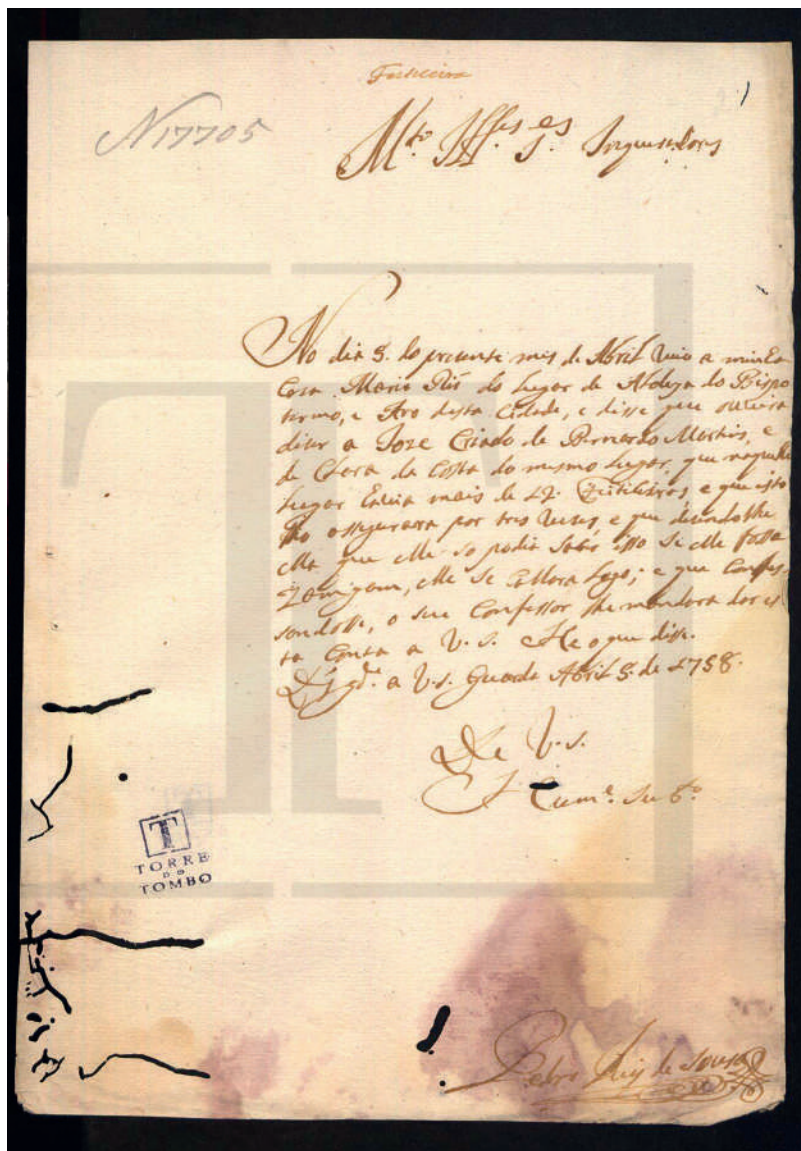 Feiticeira
1
N 17705
M.to Ill.es S.es Inquisidores
No dia 5. do prezente mes de Abril veio a minha
Caza Maria Roiz do Lugar de Aldeya do Bispo
termo, e Aro desta Cidade, e disse que ouvira
dizer a Joze Criado de Bernardo Martins, e
de Clara da Costa do mesmo lugar, que naquelle
Lugar havia mais de 12. feiticeiras, e que isto
lho assegurara por tres vezes, e que dizendolhe
ella que elle so podia saber isso se elle fosse
elle se callara logo; e que confes
sandosse, o seu Confessor lhe mandara dar es
ta Conta a V. S. He o que disse.
D.s g.de a V. S. Guarda Abril 8. de 1758.
De V. S.
Hum.e Su b.o
TORRE
DO
TOMBO
Pedro Roiz de Sousa